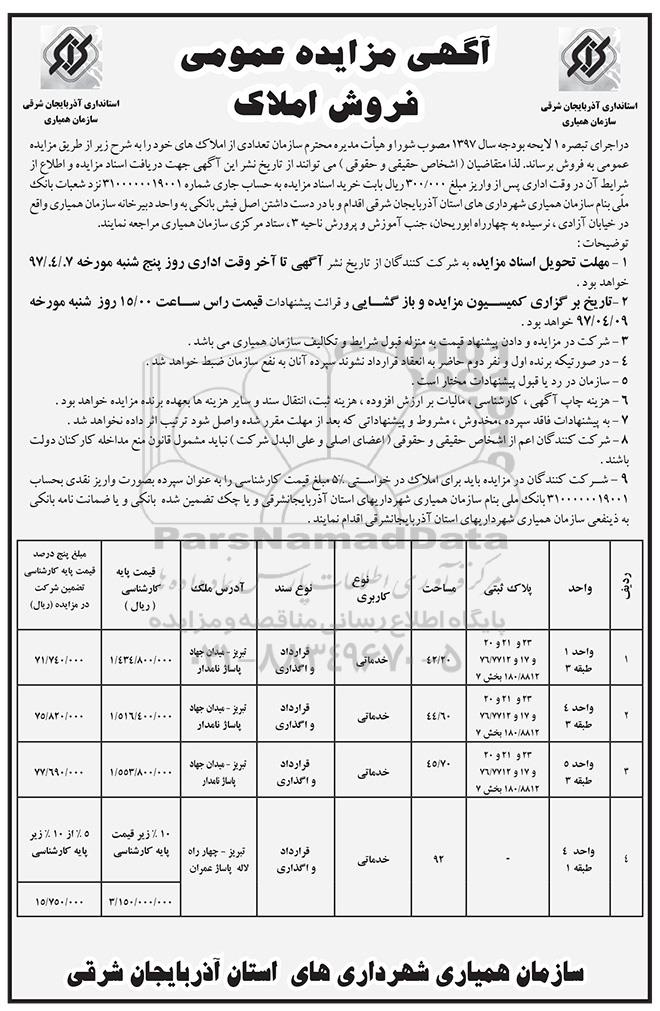 آگهی مزایده عمومی
فروش املاک
استانداری آذربایجان شرقی
سازمان همیاری
استانداری آذربایجان شرقی
سازمان همیاری
دراجرای تبصره ۱ لایحه بودجه سال ۱۳۹۷ مصوب شورا و هیأت مدیره محترم سازمان تعدادی از املاک های خود را به شرح زیر از طریق مزایده
عمومی به فروش برساند. لذا متقاضیان ( اشخاص حقیقی و حقوقی ) می توانند از تاریخ نشر این آگهی جهت دریافت اسناد مزایده و اطلاع از
شرایط آن در وقت اداری پس از واریز مبلغ ۳۰۰/۰۰۰ ریال بابت خرید اسناد مزایده به حساب جاری شماره ۳۱۰۰۰۰۰۰۱۹۰۰۱ نزد شعبات بانک
ملی بنام سازمان همیاری شهرداری های استان آذربایجان شرقی اقدام و با در دست داشتن اصل فیش بانکی به واحد دبیرخانه سازمان همیاری واقع
در خیابان آزادی ، نرسیده به چهارراه ابوریحان، جنب آموزش و پرورش ناحیه ۳ ، ستاد مرکزی سازمان همیاری مراجعه نمایند.
توضیحات :
۱ - مهلت تحویل اسناد مزایده به شرکت کنندگان از تاریخ نشر آگهی تا آخر وقت اداری روز پنج شنبه مورخه ۹۷/۰۴/۰۷
خواهد بود .
۲-تاریخ برگزاری کمیسیون مزایده و باز گشایی و قرائت پیشنهادات قیمت راس ساعت ۱۵/۰۰ روز شنبه مورخه
۹۷/۰۴/۰۹ خواهد بود .
۳ - شرکت در مزایده و دادن پیشنهاد قیمت به منزله قبول شرایط و تکالیف سازمان همیاری می باشد .
۴ - در صورتیکه برنده اول و نفر دوم حاضر به انعقاد قرارداد نشوند سپرده آنان به نفع سازمان ضبط خواهد شد .
۵ - سازمان در رد یا قبول پیشنهادات مختار است .
۶ - هزینه چاپ آگهی ، کارشناسی ، مالیات بر ارزش افزوده ، هزینه ثبت، انتقال سند و سایر هزینه ها بعهده برنده مزایده خواهد بود .
۷ - به پیشنهادات فاقد سپرده ،مخدوش ، مشروط و پیشنهاداتی که بعد از مهلت مقرر شده واصل شود ترتیب اثر داده نخواهد شد .
۸ - شرکت کنندگان اعم از اشخاص حقیقی و حقوقی ( اعضای اصلی و علی البدل شرکت ) نباید مشمول قانون منع مداخله کارکنان دولت
باشند .
۹ - شرکت کنندگان در مزایده باید برای املاک در خواستی ۵٪ مبلغ قیمت کارشناسی را به عنوان سپرده بصورت واریز نقدی بحساب
۳۱۰۰۰۰۰۰۱۹۰۰۱ بانک ملی بنام سازمان همیاری شهرداریهای استان آذربایجانشرقی و یا چک تضمین شده بانکی و یا ضمانت نامه بانکی
به ذینفعی سازمان همیاری شهرداریهای استان آذربایجانشرقی اقدام نمایند .
ParsNamadData
مرکز فرآوری اطلاعات پارس نماد داده ها
پایگاه اطلاع رسانی مناقصه و مزایده
۰۲۱-۸۸۳۴۹۶۷۰-۵
ردیف واحد پلاک ثبتی مساحت نوع کاربری نوع سند آدرس ملک قیمت پایه کارشناسی ( ریال ) مبلغ پنج درصد قیمت پایه کارشناسی تضمین شرکت در مزایده (ریال)
۱ واحد ۱ طبقه ۳ ۲۳ و ۲۱ و ۲۰ و ۱۷ و ۷۶/۷۷۱۲ ۱۸۰/۸۸۱۲ بخش ۷ ۴۲/۲۰ خدماتی قرارداد و اگذاری تبریز - میدان جهاد پاساژ نامدار ۱/۴۳۴/۸۰۰/۰۰۰ ۷۱/۷۴۰/۰۰۰
۲ واحد ۴ طبقه ۳ ۲۳ و ۲۱ و ۲۰ و ۱۷ و ۷۶/۷۷۱۲ ۱۸۰/۸۸۱۲ بخش ۷ ۴۴/۶۰ خدماتی قرارداد و اگذاری تبریز - میدان جهاد پاساژ نامدار ۱/۵۱۶/۴۰۰/۰۰۰ ۷۵/۸۲۰/۰۰۰
۳ واحد ۵ طبقه ۳ ۲۳ و ۲۱ و ۲۰ و ۱۷ و ۷۶/۷۷۱۲ ۱۸۰/۸۸۱۲ بخش ۷ ۴۵/۷۰ خدماتی قرارداد و اگذاری تبریز - میدان جهاد پاساژ نامدار ۱/۵۵۳/۸۰۰/۰۰۰ ۷۷/۶۹۰/۰۰۰
۴ واحد ۴ طبقه ۱ - ۹۲ خدماتی قرارداد و اگذاری تبریز - چهار راه لاله پاساژ عمران ۱۰ ٪ زیر قیمت پایه کارشناسی ۵ ٪ از ۱۰ ٪ زیر پایه کارشناسی
۳/۱۵۰/۰۰۰/۰۰۰ ۱۵/۷۵۰/۰۰۰
سازمان همیاری شهرداری های استان آذربایجان شرقی